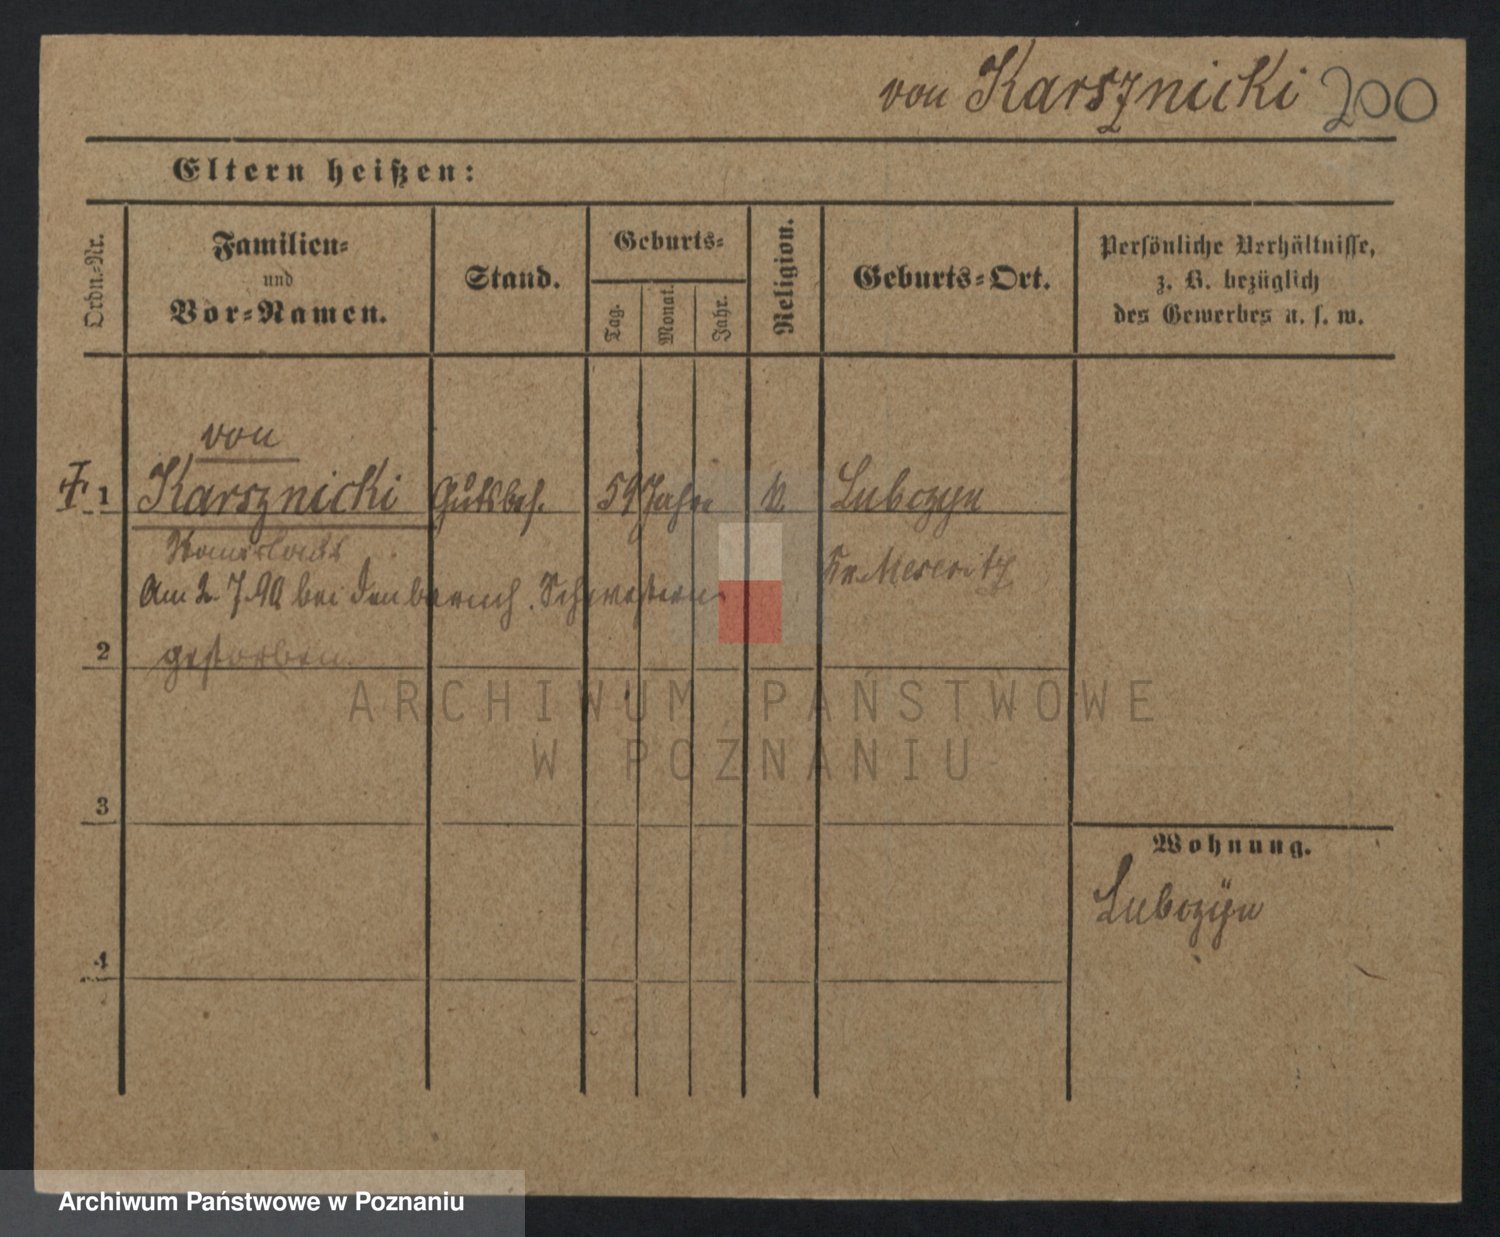 von Karsznicki 200
Eltern heißen:
Ordn.=Nr.
Familien=
und
Vor=Namen.
Stand.
Geburts=
Tag.
Monat.
Jahr.
Religion.
Geburts=Ort.
Persönliche Verhältnisse,
z. B. bezüglich
des Gewerbes u. s. w.
von
1 Karsznicki Gutsbes. 59 Jahre Lubozyn
Kr. Meseritz
Am 2. 7. 90 bei den barmh. Schwestern
gestorben.
2
3
4
Wohnung.
Lubozÿn
ARCHIWUM PAŃSTWOWE
W POZNANIU
Archiwum Państwowe w Poznaniu